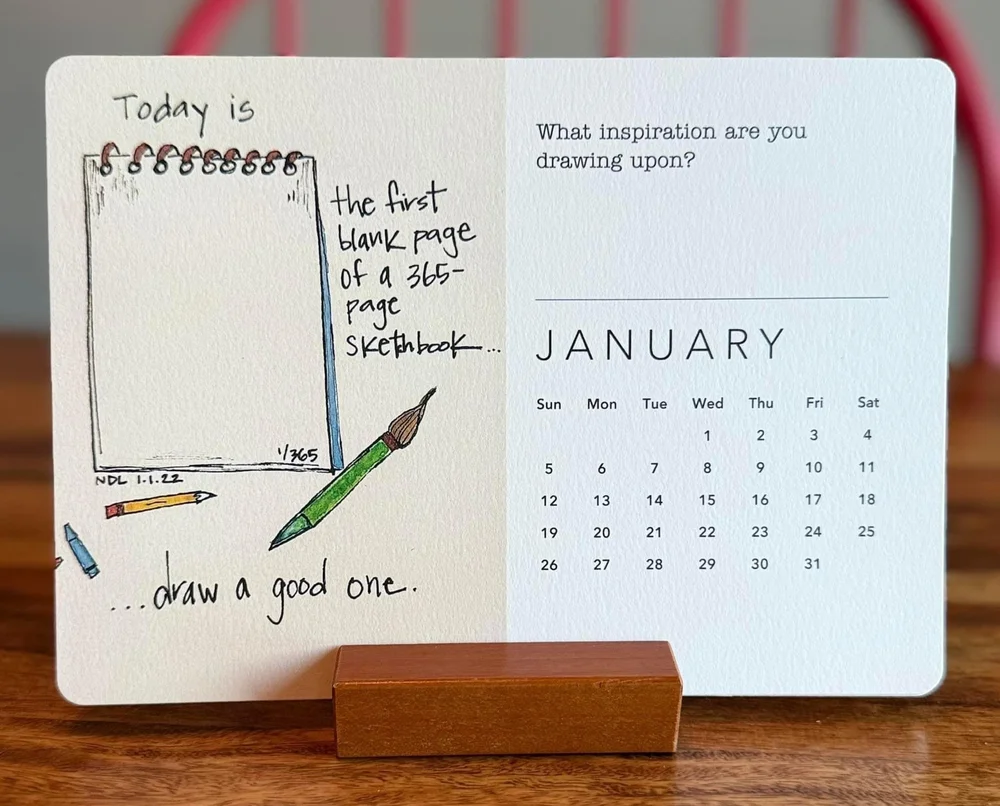 Today is
the first
blank page
of a 365-
page
sketchbook...
1/365
NDL 1.1.22
...draw a good one.
What inspiration are you
drawing upon?
JANUARY
Sun Mon Tue Wed Thu Fri Sat
1 2 3 4
5 6 7 8 9 10 11
12 13 14 15 16 17 18
19 20 21 22 23 24 25
26 27 28 29 30 31